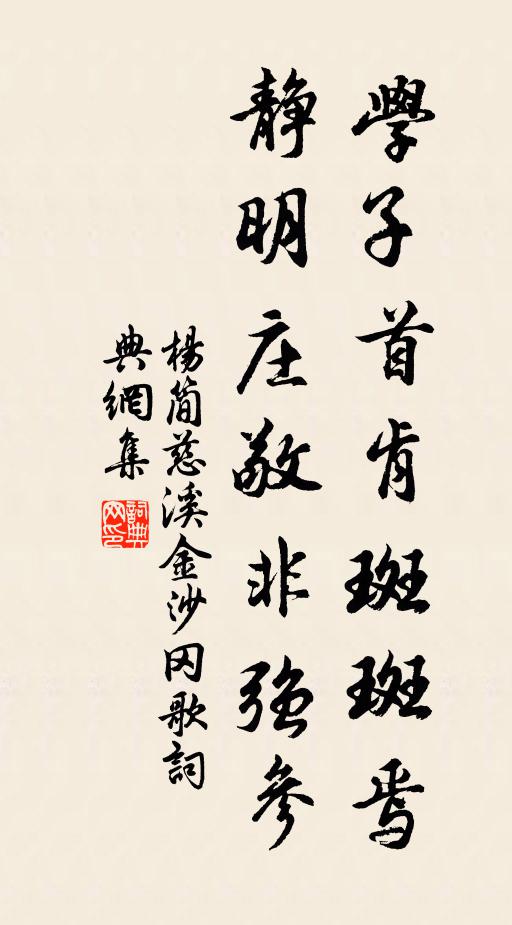 學子首肯斑斑焉
静明庄敬非強參
楊簡慈溪金沙冈歌詞
典網集
詞典
网印